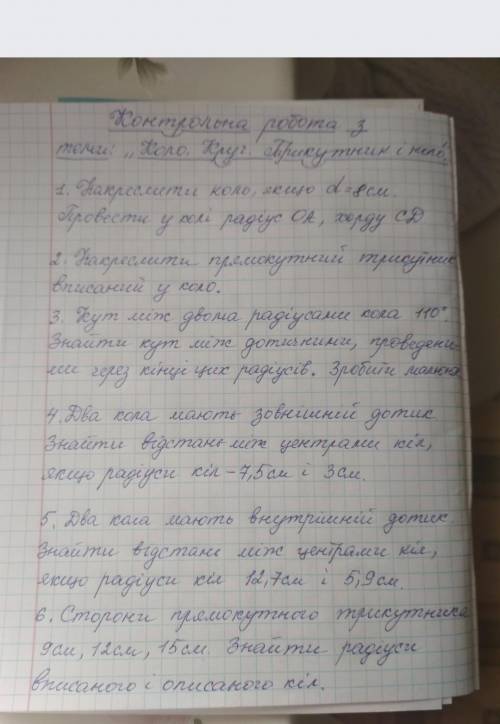 Контрольна робота з
теми: „Коло. Круг. Трикутник і коло"
1. Накреслити коло, якщо d = 8 см.
Провести у колі радіус ОА, хорду СД
2. Накреслити прямокутний трикутник
вписаний у коло.
3. Кут між двома радіусами кола 110°.
Знайти кут між дотичними, проведени-
ми через кінці цих радіусів. Зробити малюнок
4. Два кола мають зовнішній дотик
Знайти відстань між центрами кіл,
якщо радіуси кіл – 7,5 см і 3 см.
5. Два кола мають внутрішній дотик.
Знайти відстань між центрами кіл,
якщо радіуси кіл 12,7 см і 5,9 см.
6. Сторони прямокутного трикутника
9 см, 12 см, 15 см. Знайти радіуси
вписаного і описаного кіл.